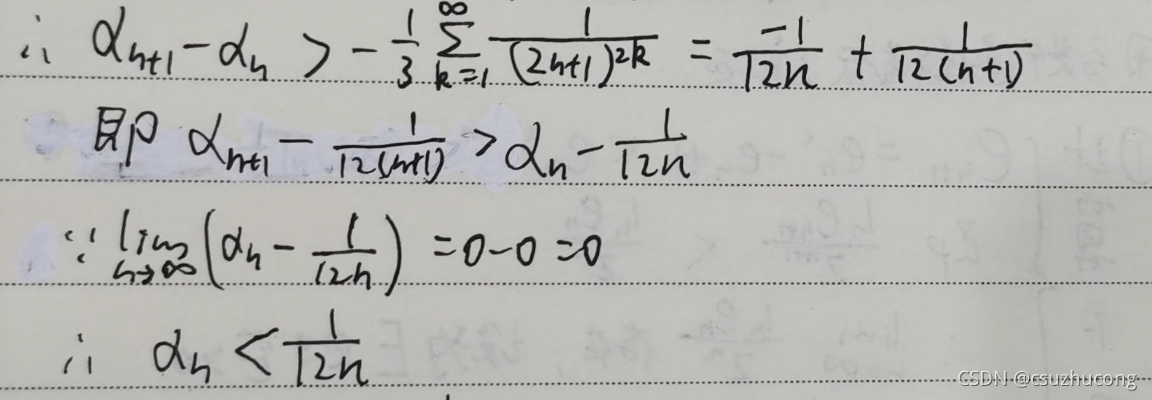 ∴ α_{n+1} - α_n > -\frac{1}{3} \sum_{k=1}^{∞} \frac{1}{(2n+1)^{2k}} = \frac{-1}{12n} + \frac{1}{12(n+1)}
即 α_{n+1} - \frac{1}{12(n+1)} > α_n - \frac{1}{12n}
∵ \lim_{n→∞} (α_n - \frac{1}{12n}) = 0-0=0
∴ α_n < \frac{1}{12n}
CSDN @csuzhucong